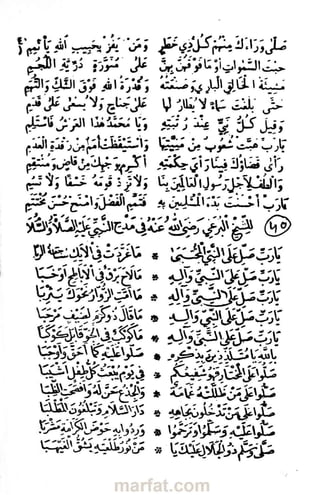 صَلَّى وَرَاءَكَ مِنْهُمْ كُلُّ ذِي خَطَرٍ وَمَنْ يَفُزْ بِحَبِيبِ اللهِ يَأْتَمِمِ
جُبْتَ السَّمٰوَاتِ أَوْ مَا فَوْقَهُنَّ بِهِنَّ عَلَى مُنَوَّرَةٍ دُرِّيَّةِ اللُّجُمِ
مَشِيئَةُ الْخَالِقِ الْبَارِي وَصَنْعَتُهُ وَقُدْرَةُ اللهِ فَوْقَ الشَّكِّ وَالتُّهَمِ
حَتَّى بَلَغْتَ سَمَاءً لَا يُطَارُ لَهَا عَلَى جَنَاحٍ وَلَا يُسْعَى عَلَى قَدَمِ
وَقِيلَ كُلُّ نَبِيٍّ عِنْدَ رُتْبَتِهِ وَيَا مُحَمَّدُ هٰذَا الْعَرْشُ فَاسْتَلِمِ
يَارَبِّ هَبَّتْ شُعُوبٌ مِنْ مَنِيَّتِهَا وَاسْتَيْقَظَتْ أُمَمٌ مِنْ رَقْدَةِ الْعَدَمِ
رَأَى قَضَاؤُكَ فِينَا رَأْيَ حِكْمَتِهِ أَكْرِمْ بِوَجْهِكَ مِنْ قَاضٍ وَمُنْتَقِمِ
وَالْطُفْ لِأَجْلِ رَسُولِ الْعَالَمِينَ بِنَا وَلَا تَزِدْ قَوْمَهُ خَسْفًا وَلَا تُسِمِ
يَارَبِّ أَحْسَنْتَ بَدْءَ الْمُسْلِمِينَ بِهِ فَتَمِّمِ الْفَضْلَ وَامْنَحْ حُسْنَ مُخْتَتَمِ
(٤٥) لِلشَّيْخِ الْبُرَعِي رَضِيَ اللهُ عَنْهُ فِي مَدْحِ النَّبِيِّ عَلَيْهِ الصَّلَاةُ وَالسَّلَامُ
يَارَبِّ صَلِّ عَلَى النَّبِيِّ الْمُجْتَبَى * مَا غَرَّدَتْ فِي الْأَيْكِ سَاجِعَةُ الرُّبَا
يَارَبِّ صَلِّ عَلَى النَّبِيِّ وَآلِهِ * مَا لَاحَ بَرْقٌ فِي الْأَبَاطِحِ أَوْ خَبَا
يَارَبِّ صَلِّ عَلَى النَّبِيِّ وَآلِهِ * مَا أَمَّتِ الزُّوَّارُ نَحْوَكَ يَثْرِبَا
يَارَبِّ صَلِّ عَلَى النَّبِيِّ وَآلِهِ * مَا قَالَ ذُو كَرَمٍ لِضَيْفٍ مَرْحَبَا
يَارَبِّ صَلِّ عَلَى النَّبِيِّ وَآلِهِ * مَا كَوْكَبٌ فِي الْجَوِّ قَابَلَ كَوْكَبَا
بِاللهِ يَا مُتَلَذِّذِينَ بِذِكْرِهِ * صَلُّوا عَلَيْهِ كَمَا أَحَقَّ وَأَوْجَبَا
صَلُّوا عَلَى الْمُخْتَارِ فَهُوَ شَفِيعُكُمْ * فِي يَوْمِ يُبْعَثُ كُلُّ طِفْلٍ أَشْيَبَا
صَلُّوا عَلَى مَنْ ظَلَّلَتْهُ غَمَامَةٌ * وَالْجِذْعُ حَنَّ لَهُ وَأَفْصَحَتِ الظِّبَا
صَلُّوا عَلَى مَنْ تَدْخُلُونَ بِجَاهِهِ * دَارَ السَّلَامِ وَتَبْلُغُونَ الْمَطْلَبَا
صَلُّوا عَلَيْهِ وَسَلِّمُوا وَتَرَحَّمُوا * وَرِدُوا بِهِ حَوْضَ الْكَرَامَةِ مَشْرَبَا
صَلَّى وَسَلَّمَ ذُو الْجَلَالِ عَلَيْكَ يَا * مَنْ نُورُ طَلْعَتِهِ يَشُقُّ الْغَيْهَبَا
marfat.com